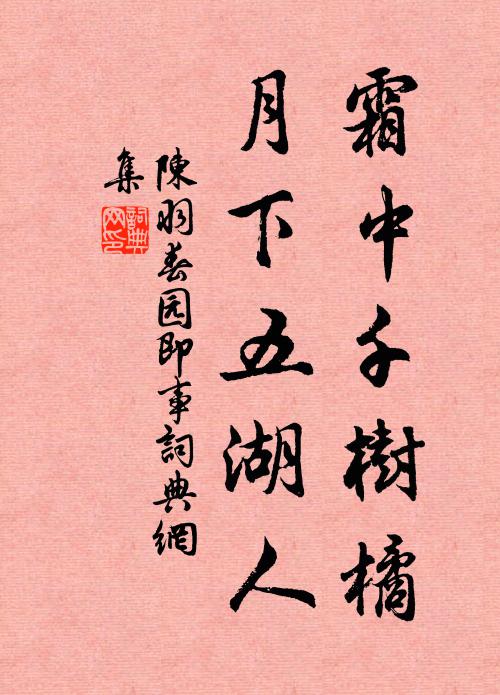 霜中千樹橘
月下五湖人
陳羽春园即事詞典網
集
詞典
网印